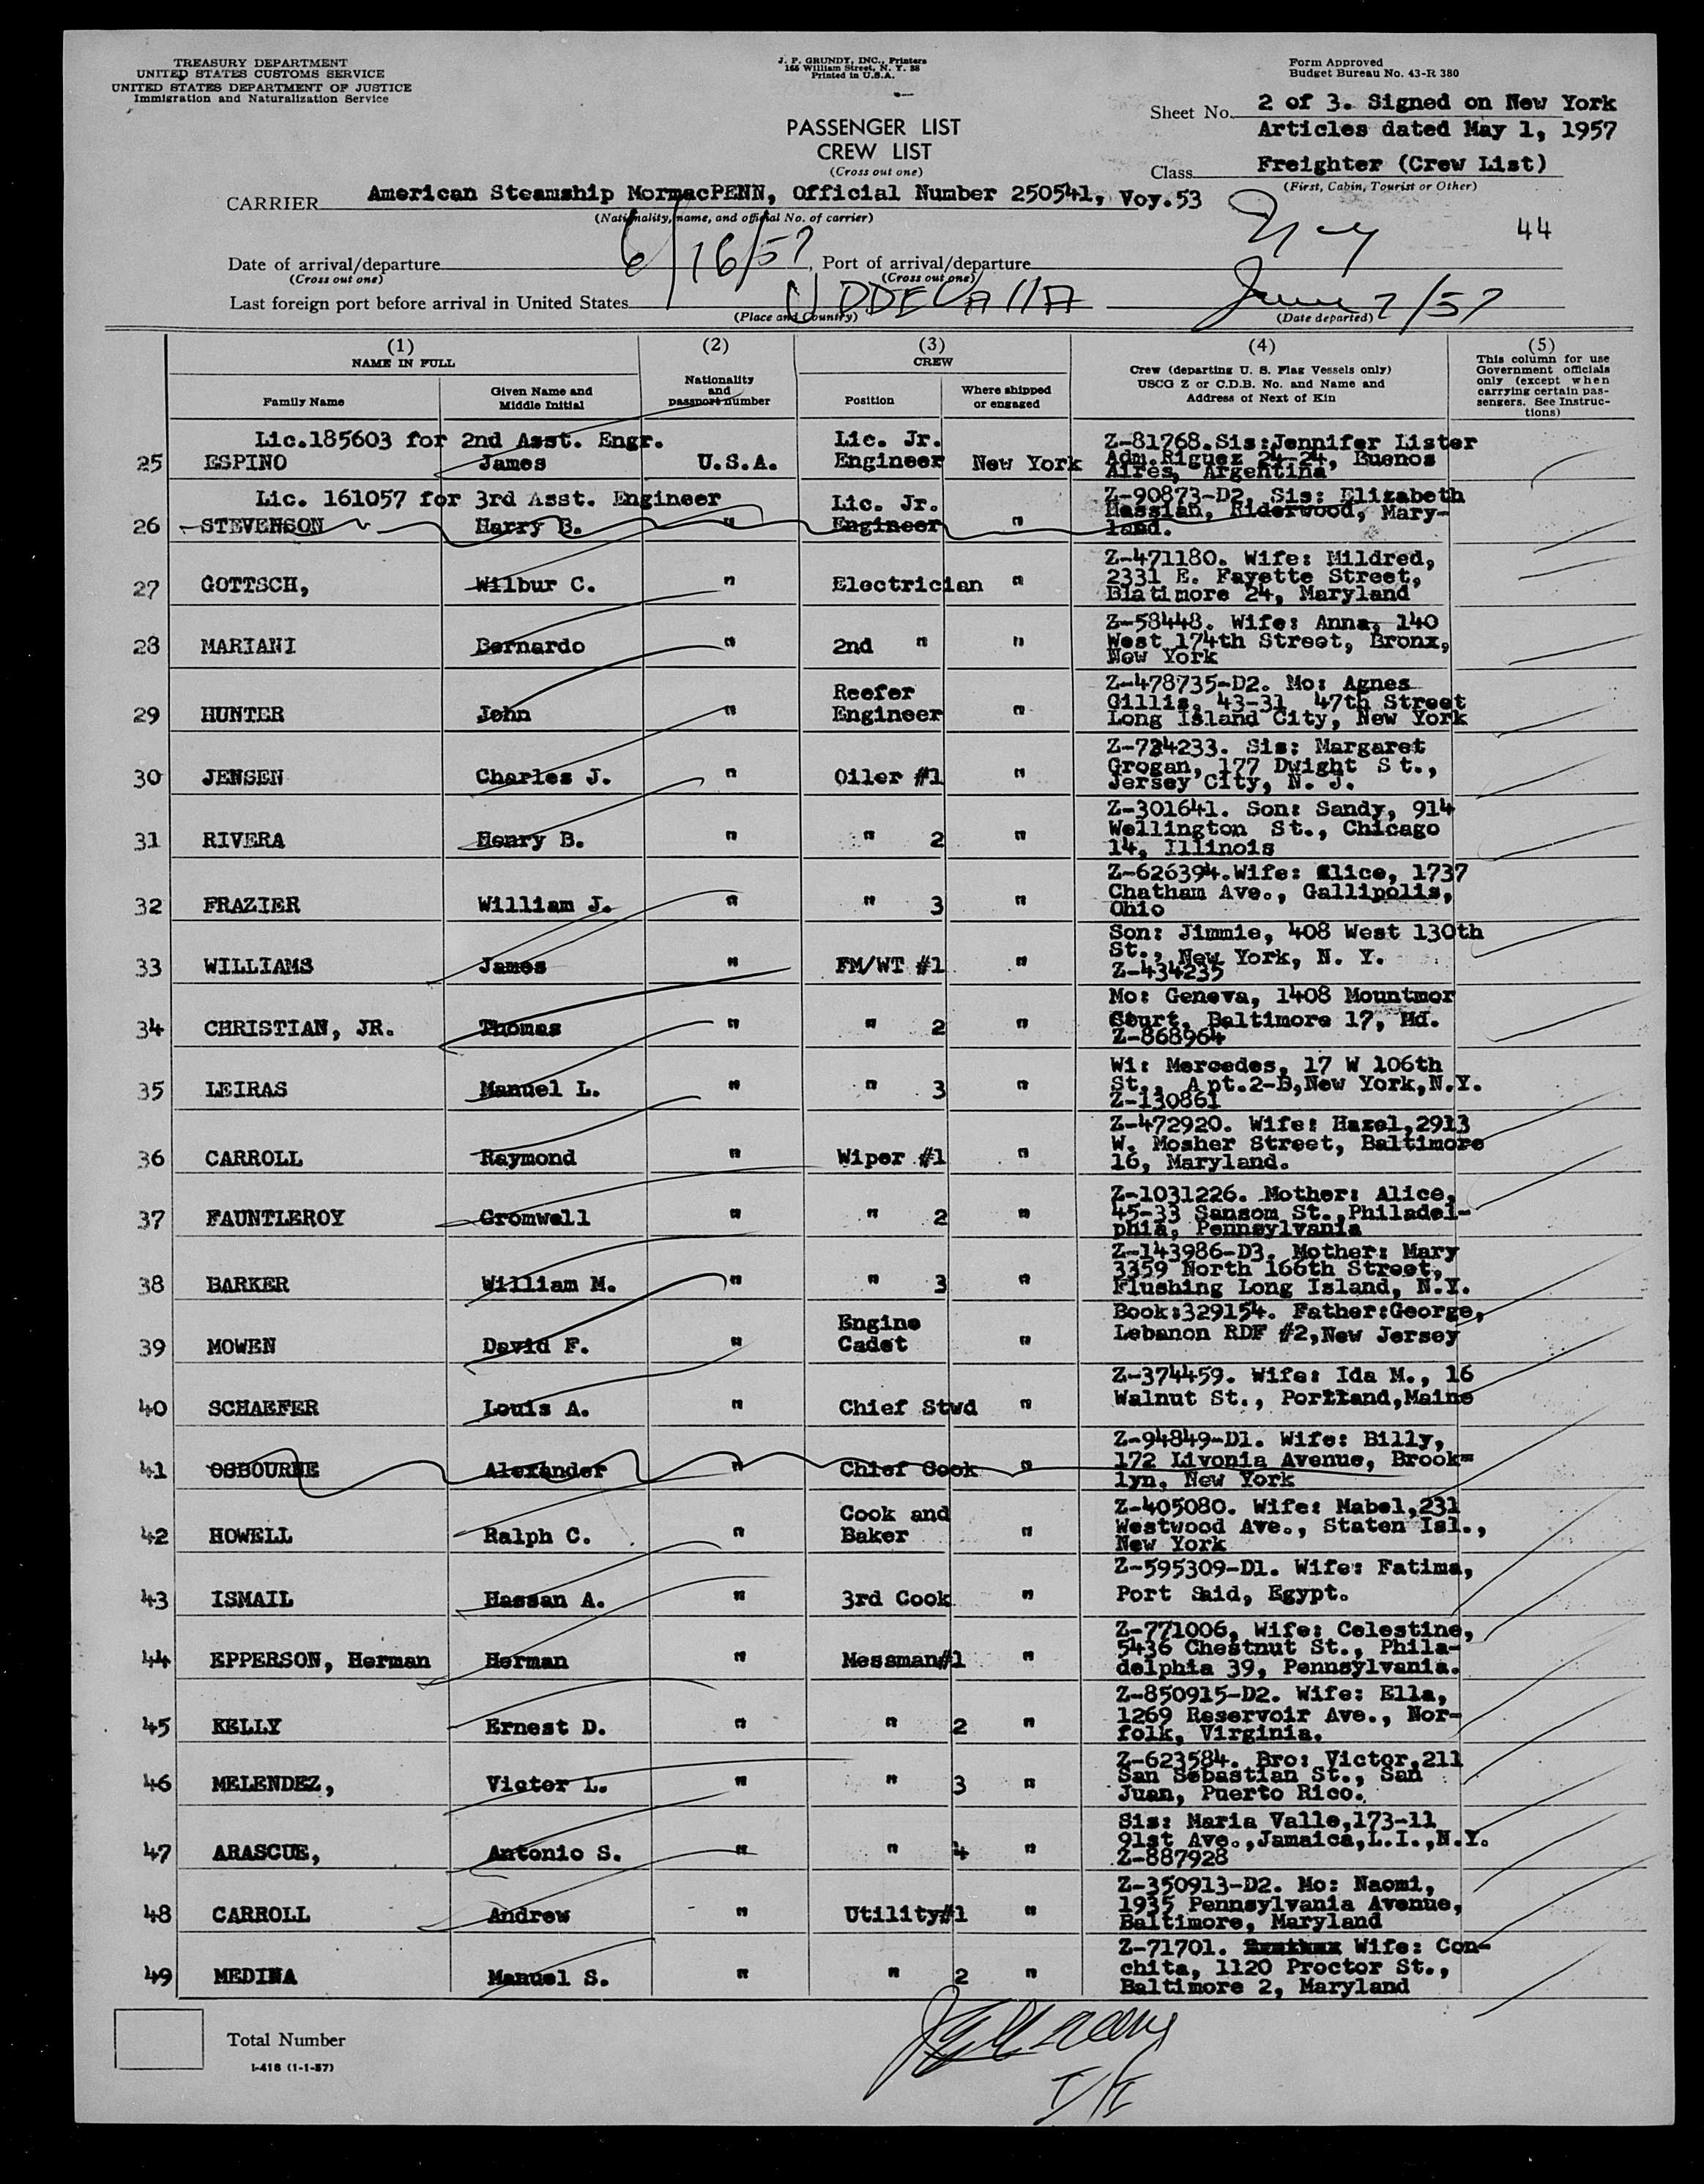 TREASURY DEPARTMENT
UNITED STATES CUSTOMS SERVICE
UNITED STATES DEPARTMENT OF JUSTICE
Immigration and Naturalization Service
J. P. GRUNDY, INC., Printers
166 William Street, N. Y. 38
Printed in U.S.A.
Form Approved
Budget Bureau No. 43-R 380
PASSENGER LIST
CREW LIST
(Cross out one)
Sheet No. 2 of 3. Signed on New York
Articles dated May 1, 1957
Class Freighter (Crew List)
(First, Cabin, Tourist or Other)
CARRIER American Steamship MormacPENN, Official Number 250541, Voy.53
(Nationality, name, and official No. of carrier)
44
Date of arrival/departure 6/16/57, Port of arrival/departure NCy
(Cross out one) (Cross out one)
Last foreign port before arrival in United States UDDEVAllA June 7/57
(Place and Country) (Date departed)
(1) NAME IN FULL
Family Name
Given Name and Middle Initial
(2)
Nationality and passport number
(3) CREW
Position
Where shipped or engaged
(4)
Crew (departing U. S. Flag Vessels only)
USCG Z or C.D.B. No. and Name and
Address of Next of Kin
(5)
This column for use
Government officials
only (except when
carrying certain pas-
sengers. See Instruc-
tions)
Lic.185603 for 2nd Asst. Engr. Lic. Jr. Z-81768.Sis:Jennifer Lister
25 ESPINO James U.S.A. Engineer New York Adm.Riguez 24-24, Buenos
Aires, Argentina
Lic. 161057 for 3rd Asst. Engineer Lic. Jr. Z-90873-D2, Sis: Elizabeth
26 STEVENSON Harry B. " Engineer " Hassian, Riderwood, Mary-
land.
Z-471180. Wife: Mildred,
27 GOTTSCH, Wilbur C. " Electrician " 2331 E. Fayette Street,
Blatimore 24, Maryland
Z-58448. Wife: Anna, 140
28 MARIANI Bernardo " 2nd " " West 174th Street, Bronx,
New York
Reefer Z-478735-D2. Mo: Agnes
29 HUNTER John " Engineer " Gillis, 43-31 47th Street
Long Island City, New York
Z-724233. Sis: Margaret
30 JENSEN Charles J. " Oiler #1 " Grogan, 177 Dwight St.,
Jersey City, N. J.
Z-301641. Son: Sandy, 914
31 RIVERA Henry B. " " 2 " Wellington St., Chicago
14, Illinois
Z-626394.Wife: Alice, 1737
32 FRAZIER William J. " " 3 " Chatham Ave., Gallipolis,
Ohio
Son: Jimmie, 408 West 130th
33 WILLIAMS James " FM/WT #1 " St., New York, N. Y.
Z-434235
Mo: Geneva, 1408 Mountmor
34 CHRISTIAN, JR. Thomas " " 2 " Court, Baltimore 17, Md.
Z-868964
Wi: Mercedes, 17 W 106th
35 LEIRAS Manuel L. " " 3 " St., Apt.2-B,New York,N.Y.
Z-130861
Z-472920. Wife: Hazel,2913
36 CARROLL Raymond " Wiper #1 " W. Mosher Street, Baltimore
16, Maryland.
Z-1031226. Mother: Alice,
37 FAUNTLEROY Cromwell " " 2 " 45-33 Sansom St.,Philadel-
phia, Pennsylvania
Z-143986-D3. Mother: Mary
38 BARKER William M. " " 3 " 3359 North 166th Street,
Flushing Long Island, N.Y.
Engine Book:329154. Father:George,
39 MOWEN David F. " Cadet " Lebanon RDF #2,New Jersey
Z-374459. Wife: Ida M., 16
40 SCHAEFER Louis A. " Chief Stwd " Walnut St., Portland,Maine
Z-94849-D1. Wife: Billy,
41 OSBOURNE Alexander " Chief Cook " 172 Livonia Avenue, Brook-
lyn, New York
Cook and Z-405080. Wife: Mabel,231
42 HOWELL Ralph C. " Baker " Westwood Ave., Staten Isl.,
New York
Z-595309-D1. Wife: Fatima,
43 ISMAIL Hassan A. " 3rd Cook " Port Said, Egypt.
Z-771006, Wife: Celestine,
44 EPPERSON, Herman Herman " Messman#1 " 5436 Chestnut St., Phila-
delphia 39, Pennsylvania.
Z-850915-D2. Wife: Ella,
45 KELLY Ernest D. " " 2 " 1269 Reservoir Ave., Nor-
folk, Virginia.
Z-623584. Bro: Victor,211
46 MELENDEZ, Victor L. " " 3 " San Sebastian St., San
Juan, Puerto Rico.
Sis: Maria Valle,173-11
47 ARASCUE, Antonio S. " " 4 " 91st Ave.,Jamaica,L.I.,N.Y.
Z-887928
Z-350913-D2. Mo: Naomi,
48 CARROLL Andrew " Utility#1 " 1935 Pennsylvania Avenue,
Baltimore, Maryland
Z-71701. Wife: Con-
49 MEDINA Manuel S. " " 2 " chita, 1120 Proctor St.,
Baltimore 2, Maryland
Total Number
I-418 (1-1-57)
I/I